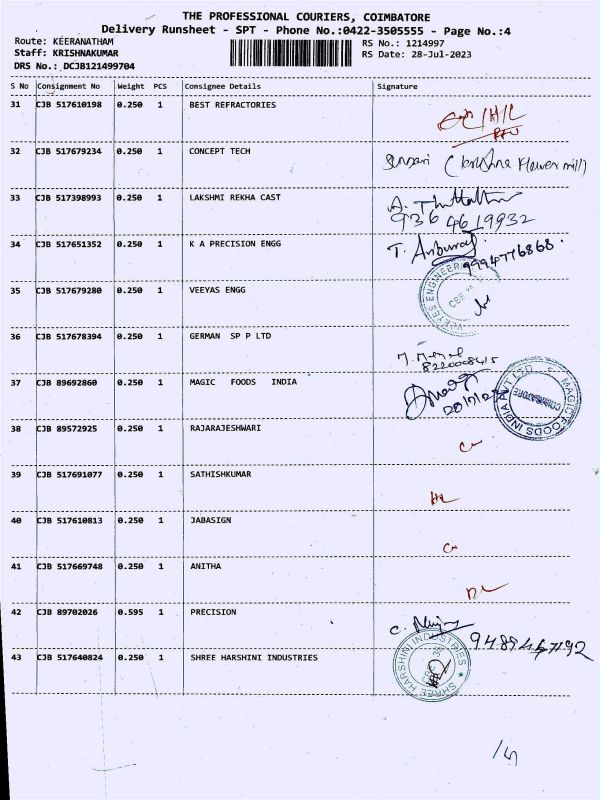 THE PROFESSIONAL COURIERS, COIMBATORE
Delivery Runsheet - SPT - Phone No.:0422-3505555 - Page No.:4
Route: KEERANATHAM RS No.: 1214997
Staff: KRISHNAKUMAR RS Date: 28-Jul-2023
DRS No.: DCJB121499704
S No Consignment No Weight PCS Consignee Details Signature
31 CJB 517610198 0.250 1 BEST REFRACTORIES
32 CJB 517679234 0.250 1 CONCEPT TECH
33 CJB 517398993 0.250 1 LAKSHMI REKHA CAST
9364619932
34 CJB 517651352 0.250 1 K A PRECISION ENGG T. Anburaj
9994776868.
35 CJB 517679280 0.250 1 VEEYAS ENGG
VEEYES ENGINEERING
36 CJB 517678394 0.250 1 GERMAN SP P LTD
8220008415
37 CJB 89692860 0.250 1 MAGIC FOODS INDIA
MAGIC FOODS INDIA PVT LTD
COIMBATORE
38 CJB 89572925 0.250 1 RAJARAJESHWARI
39 CJB 517691077 0.250 1 SATHISHKUMAR
40 CJB 517610813 0.250 1 JABASIGN
41 CJB 517669748 0.250 1 ANITHA
42 CJB 89702026 0.595 1 PRECISION
9489467192
43 CJB 517640824 0.250 1 SHREE HARSHINI INDUSTRIES
SHREE HARSHINI INDUSTRIES
CBE 35